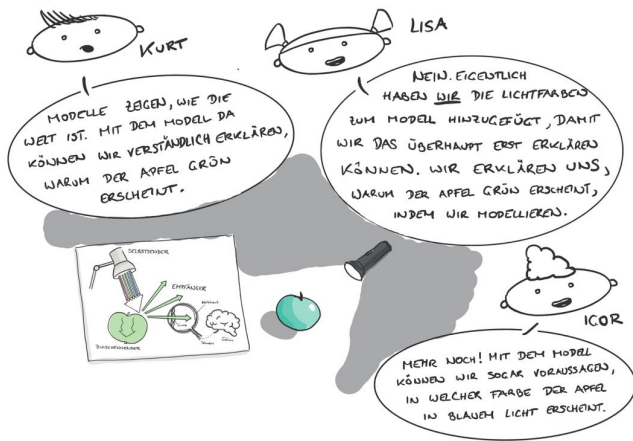 KURT
MODELLE ZEIGEN, WIE DIE
WELT IST. MIT DEM MODELL DA
KÖNNEN WIR VERSTÄNDLICH ERKLÄREN,
WARUM DER APFEL GRÜN
ERSCHEINT.
LISA
NEIN. EIGENTLICH
HABEN WIR DIE LICHTFARBEN
ZUM MODELL HINZUGEFÜGT, DAMIT
WIR DAS ÜBERHAUPT ERST ERKLÄREN
KÖNNEN. WIR ERKLÄREN UNS,
WARUM DER APFEL GRÜN ERSCHEINT,
INDEM WIR MODELLIEREN.
SELBSTSENDER
EMPFÄNGER
ZWISCHENSENDER
IGOR
MEHR NOCH! MIT DEM MODELL
KÖNNEN WIR SOGAR VORAUSSAGEN,
IN WELCHER FARBE DER APFEL
IN BLAUEM LICHT ERSCHEINT.